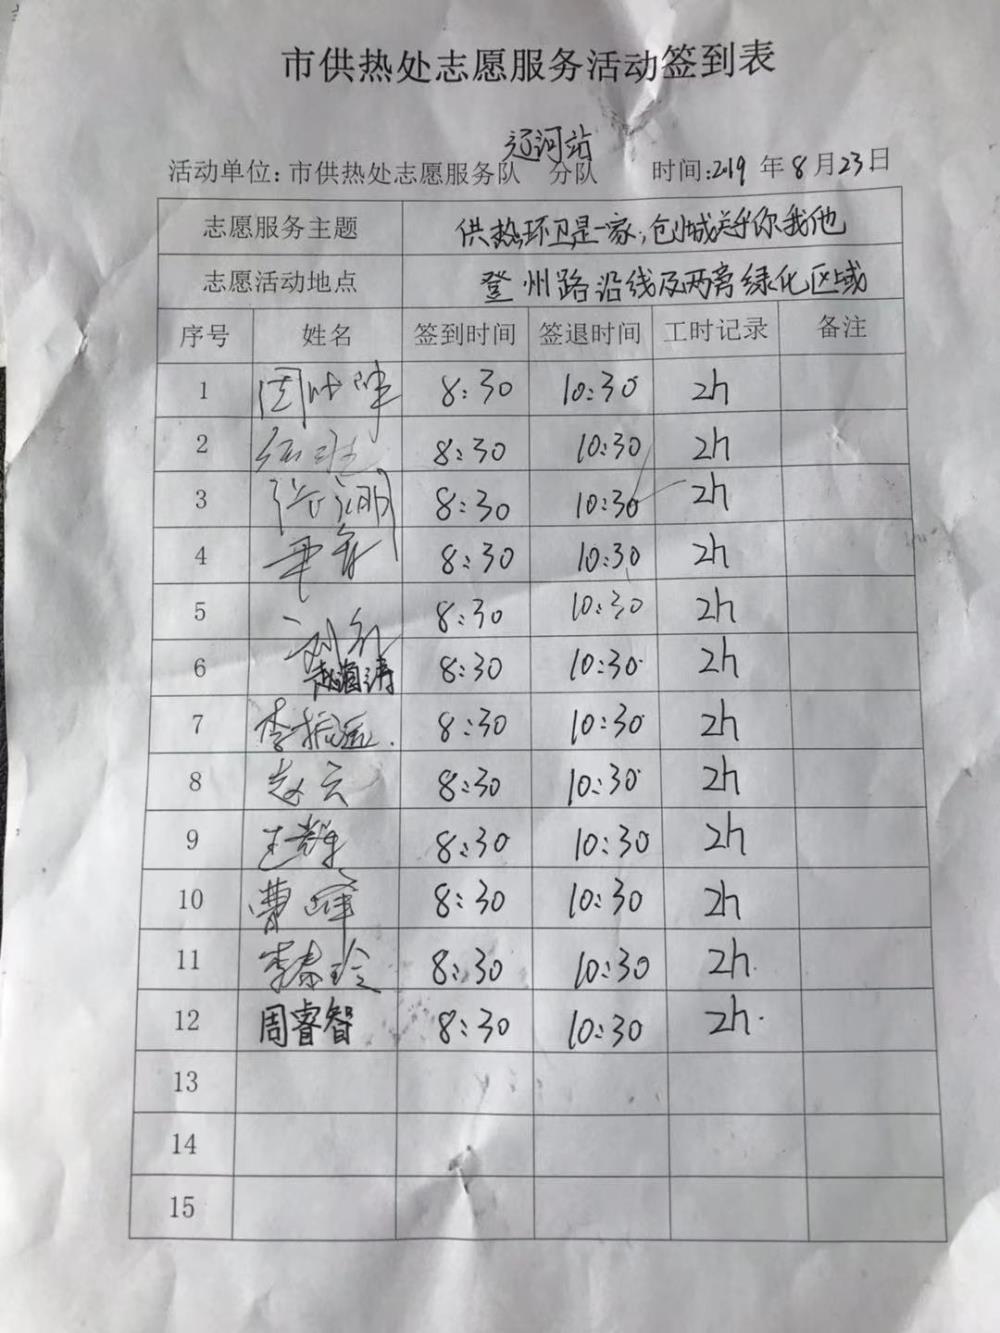 市供热处志愿服务活动签到表
迈河站
活动单位:市供热处志愿服务队 分队 时间:2019年8月23日
志愿服务主题 供热环卫是一家,创城关乎你我他
志愿活动地点 登州路沿线及两旁绿化区域
序号 姓名 签到时间 签退时间 工时记录 备注
1 8:30 10:30 2h
2 8:30 10:30 2h
3 8:30 10:30 2h
4 8:30 10:30 2h
5 8:30 10:30 2h
6 赵海涛 8:30 10:30 2h
7 李振远 8:30 10:30 2h
8 赵云 8:30 10:30 2h
9 王辉 8:30 10:30 2h
10 曹峰 8:30 10:30 2h
11 李春玲 8:30 10:30 2h
12 周睿智 8:30 10:30 2h
13
14
15